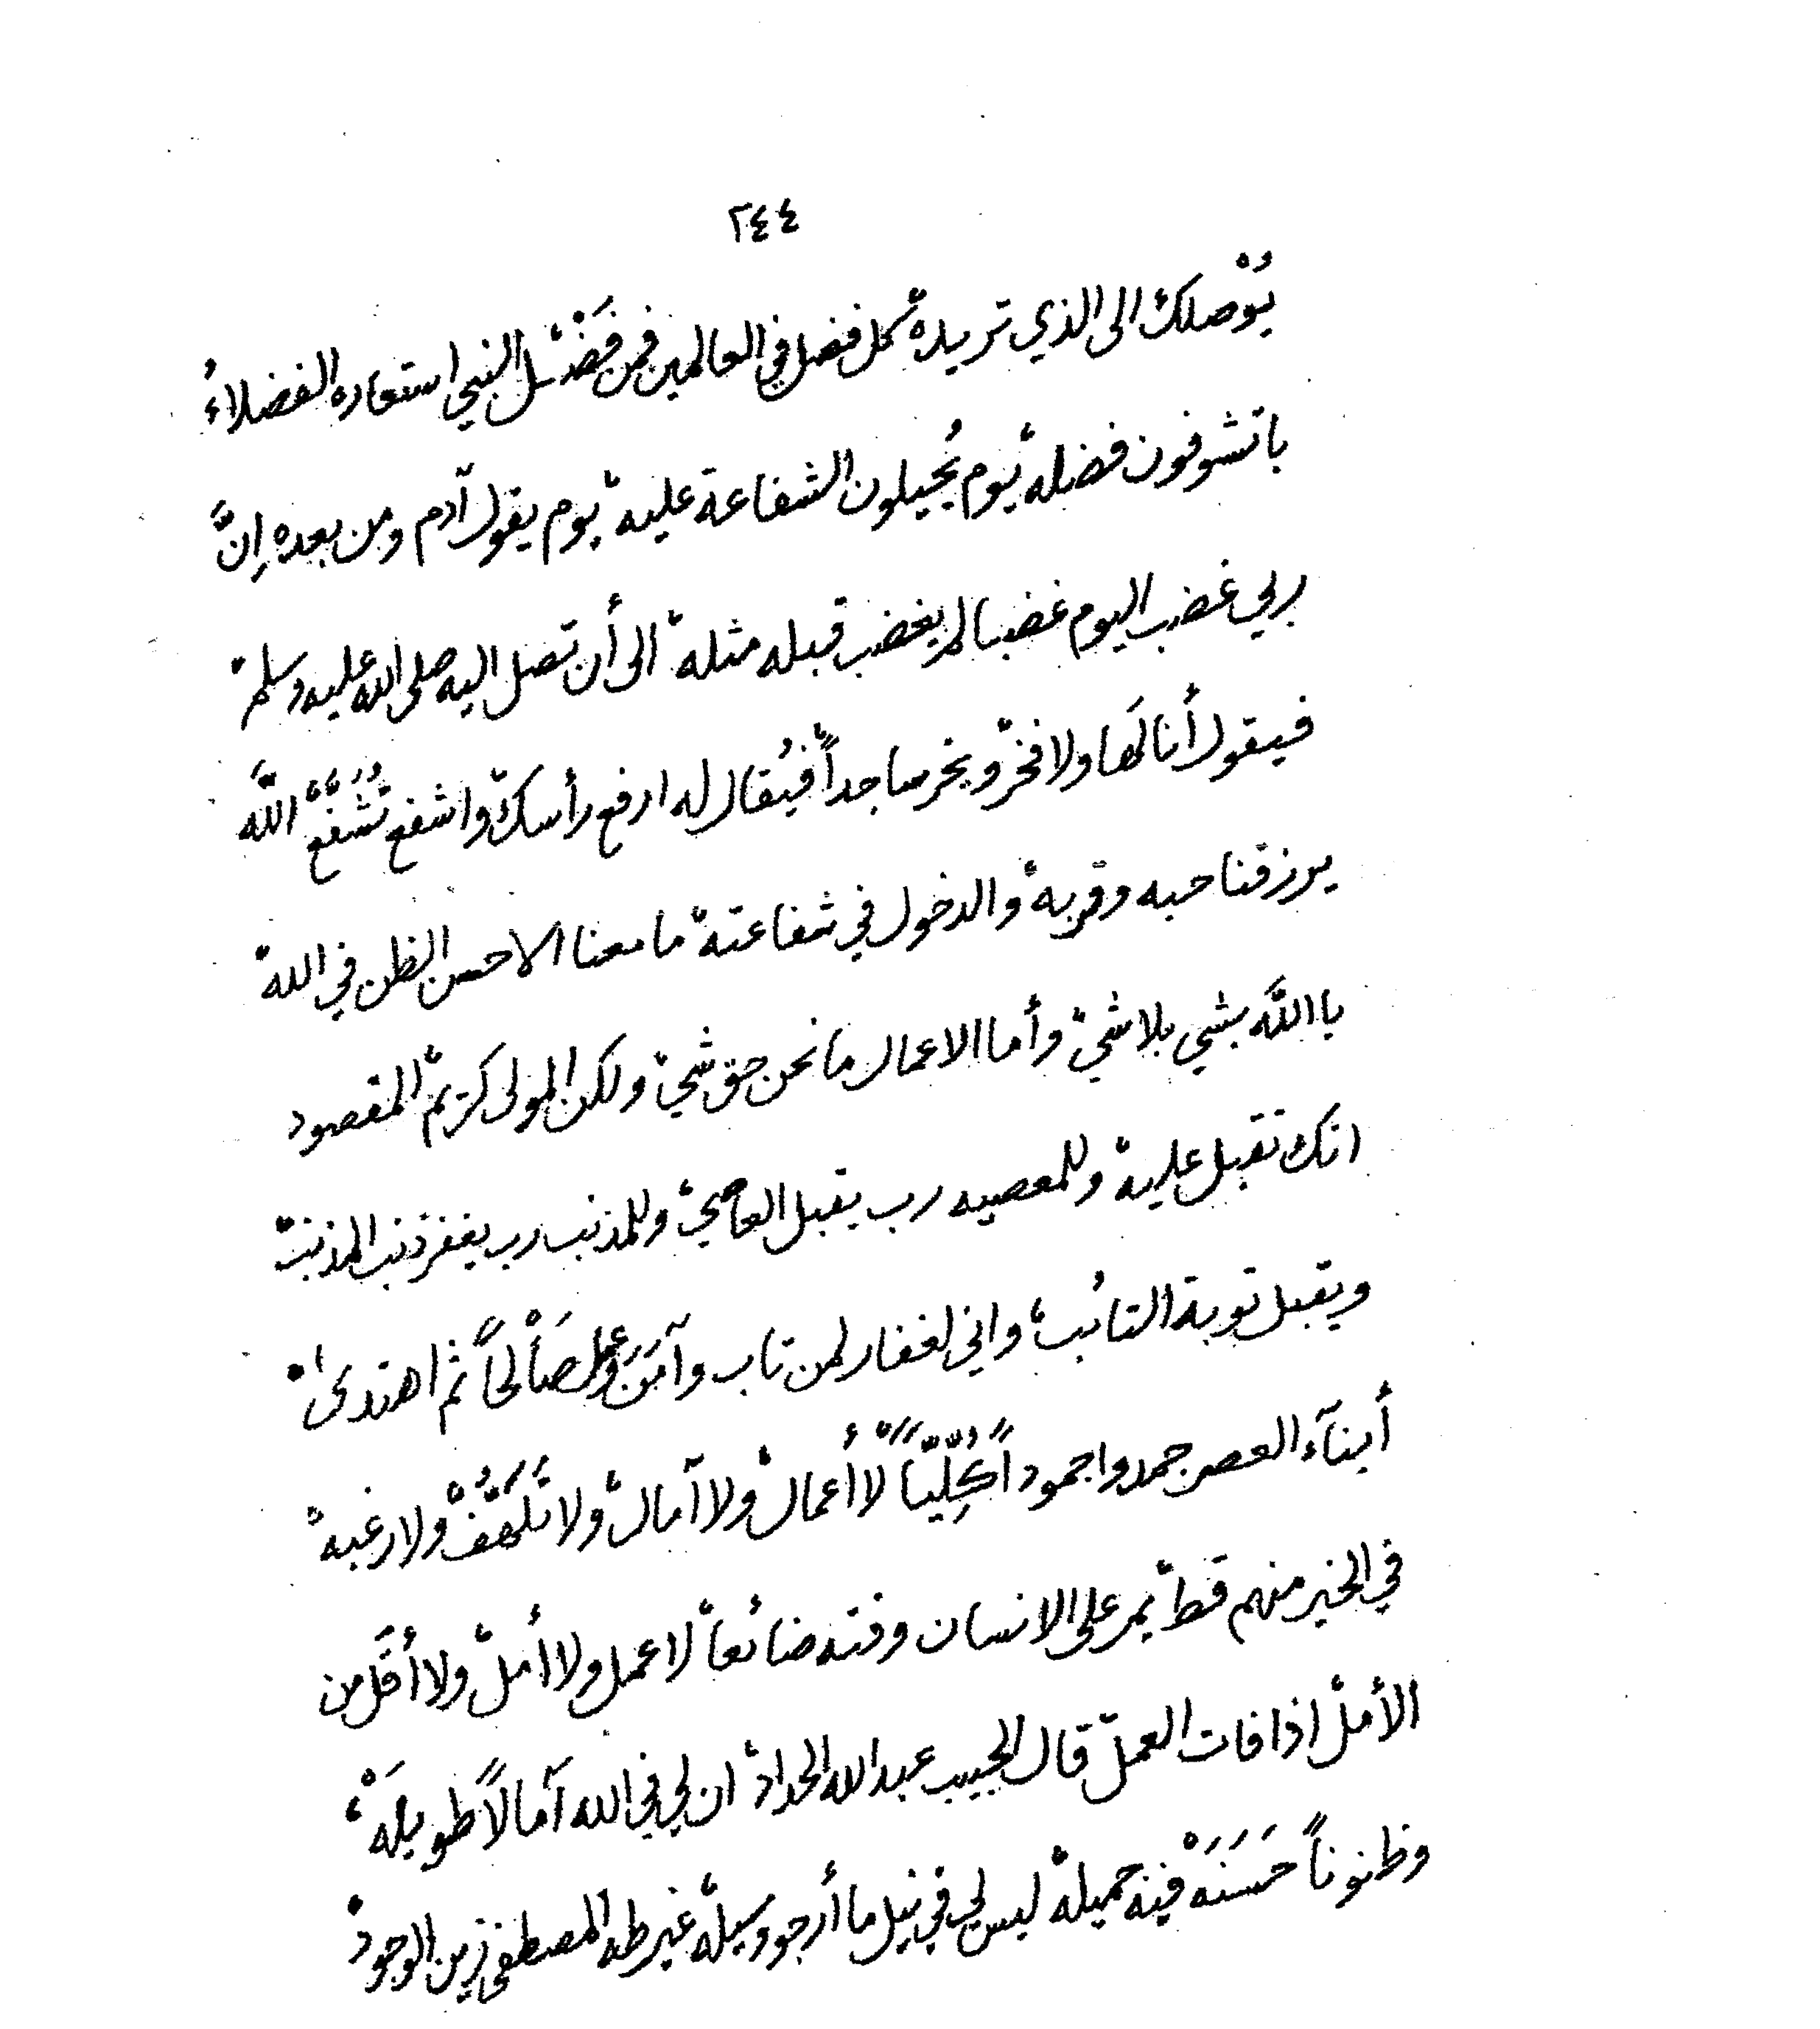 ٢٤٤
يُوْصلك الى الذي تريده كل فضل في العالمين فمن فَضْل النبي استعاره الفضلاءُ
باتشوفون فضله يوم يُحيلون الشفاعة عليه يوم يقول آدم ومن بعده اِنَّ
ربي غضب اليوم غضبا لم يغضب قبله مثله الى أن تصل اليه صلى الله عليه وسلم
فيقول أنا لَها ولا فخر ويخر ساجداً فيُقال له ارفع رأسك واشفع تُشَفَّعْ اللَّه
يرزقنا حبه وقربه والدخول في شفاعته ما معنا الا حسن الظن في الله
يااللَّه بشي بلاشي وأما الاعمال ما نحن حق شي ولكن المولى كريم المقصود
انك تقبل عليه وللمعصيه رب يقبل العاصي وللمذنب رب يغفر ذنب المذنب
ويقبل توبة التائب، واني لغفار لمن تاب وآمَنَ وعمل صَاْلحاً ثم اهتدى
أبنآء العصر جمدوا جموداً كُلِّيّاً لا أعمال ولا آمال ولا تَلَهُّفْ ولا رغبه
في الخير منهم قط يمر على الانسان وقته ضائعاً لا عمل ولا أمل ولا أقَل من
الأمل اذا فات العمل قال الحبيب عبد الله الحداد ان لي في الله آمالاً طويلَهْ،
وظنوناً حَسَنَهْ فيه جميله ليس لي في نيل ما أرجو وسيله غير طه المصطفى زين الوجود